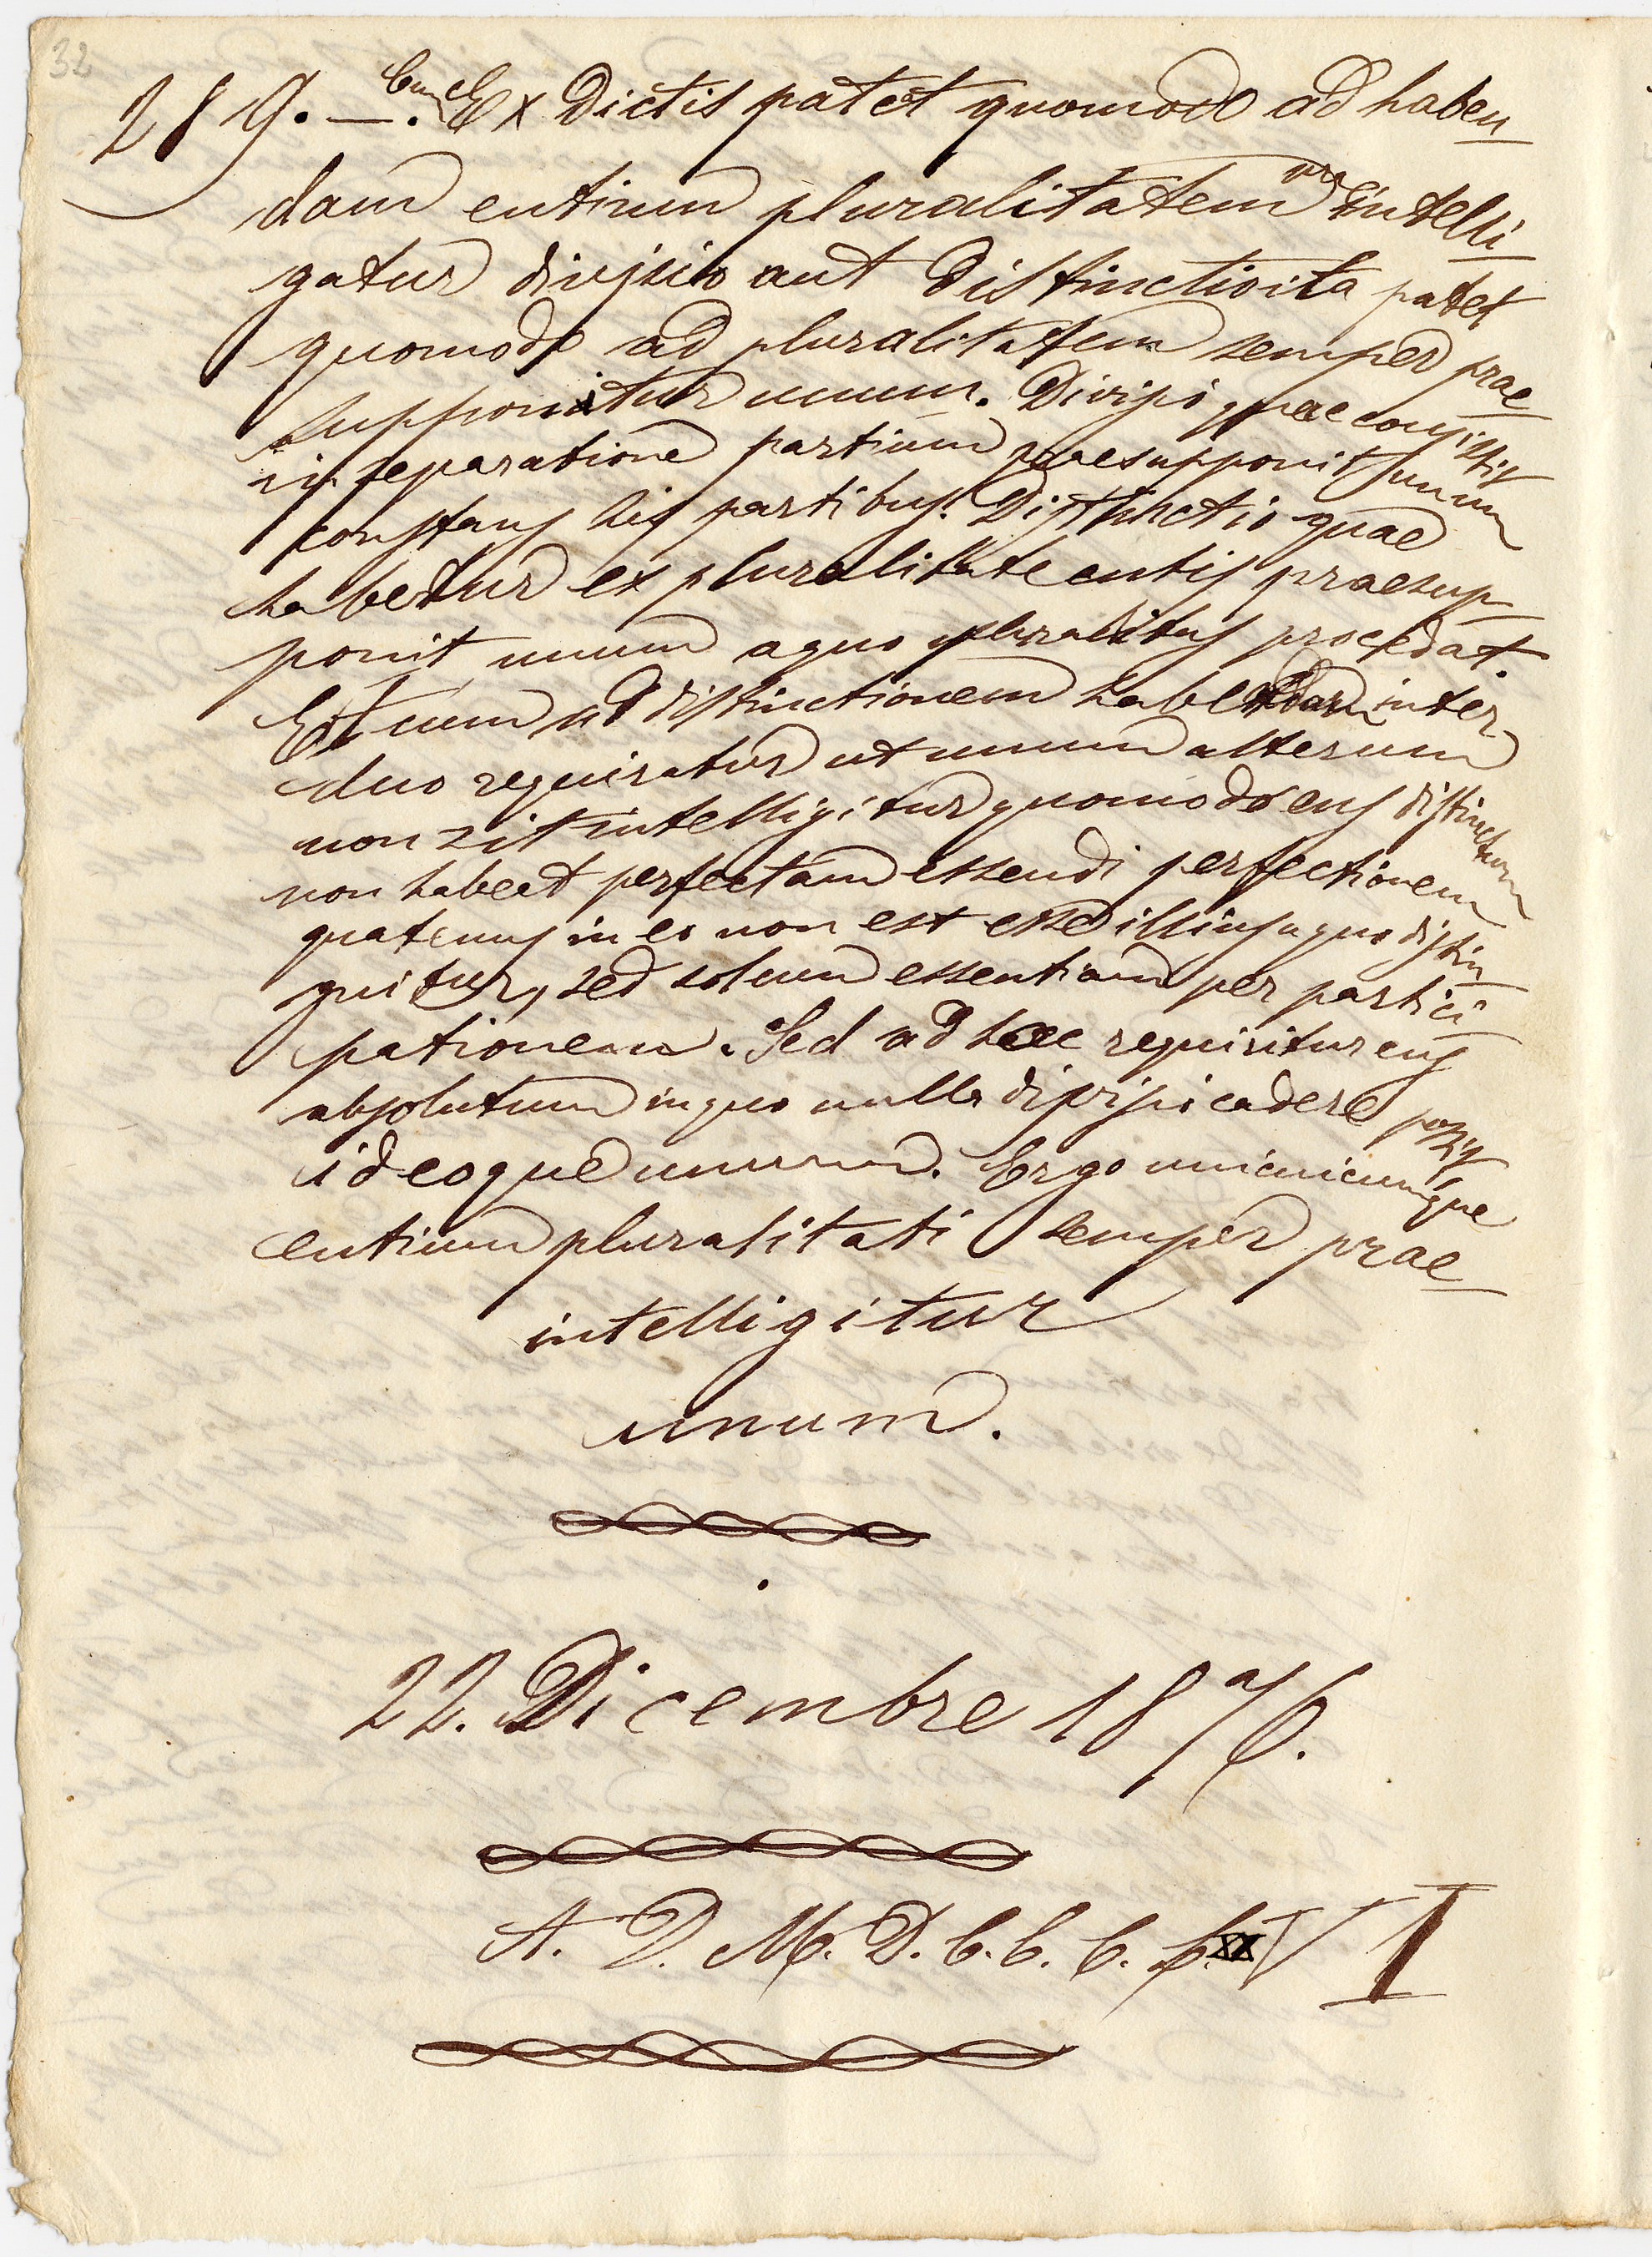 32
289. —. Cum Ex dictis patet quomodo ad haben
dam entium pluralitatem prae intelli
gatur divisio aut distinctio ita patet
quomodo ad pluralitatem semper prae
supponitur unum. Divisio quae consistit
in separatione partium praesupponit unum
constans his partibus. Distinctio quae
habetur ex pluralitate entis praesup
ponit unum a quo pluralitas procedat.
Et cum ad distinctionem habendam inter
duo requiratur ut unum alterum
non sit intelligitur quomodo ens distinctum
non habeat perfectam essendi perfectionem
quatenus in eo non est esse illius a quo distin
guitur, sed solum essentiam per partici
pationem. Sed ad hoc requiritur ens
absolutum in quo nulla divisio cadere possit
ideoque unum. Ergo unicuicumque
entium pluralitati semper prae
intelligitur
unum.
22. Dicembre 1876.
A. D. M. D. C. C. C. L. XX V I